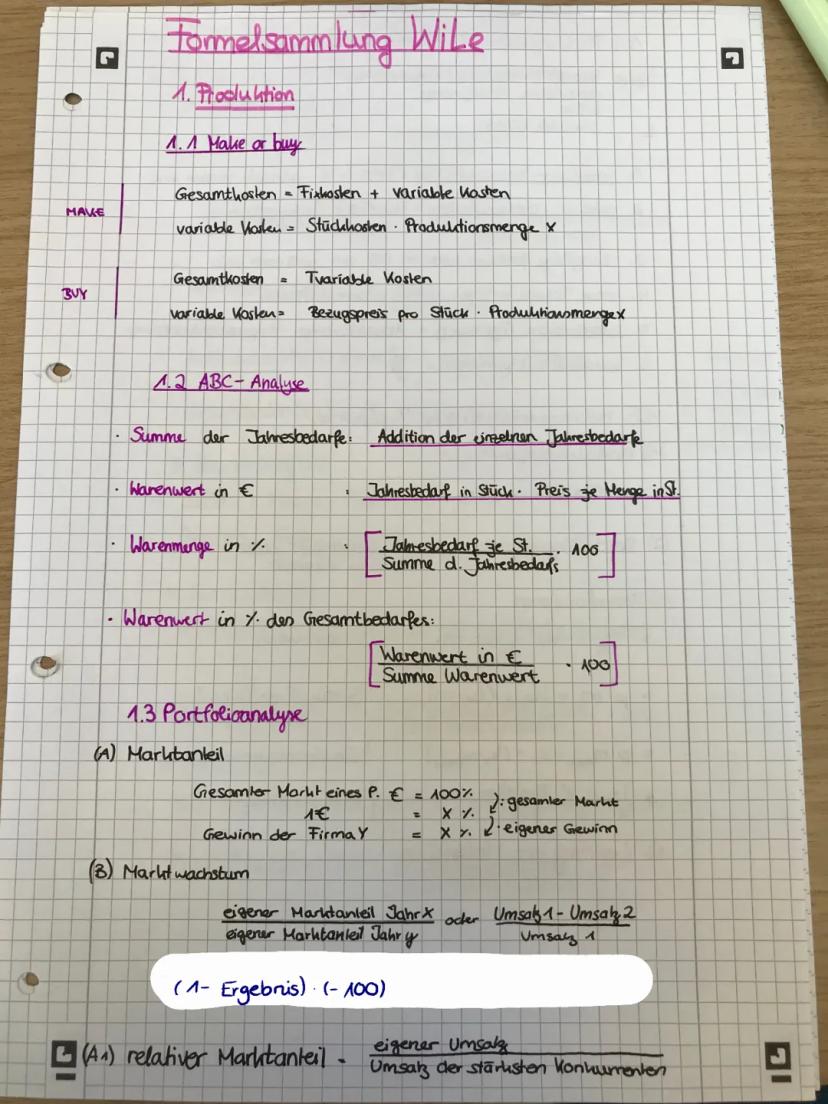 Formelsammlung WiLe
1. Produktion
1.1 Make or buy
MAKE
Gesamtkosten = Fixkosten + variable Kosten
variable Kosten = Stückkosten · Produktionsmenge x
BUY
Gesamtkosten = Tvariable Kosten
variable Kosten = Bezugspreis pro Stück · Produktionsmenge x
1.2 ABC-Analyse
· Summe der Jahresbedarfe: Addition der einzelnen Jahresbedarfe
· Warenwert in € : Jahresbedarf in Stück · Preis je Menge in St.
· Warenmenge in % : [Jahresbedarf je St. · 100]
Summe d. Jahresbedarfs
· Warenwert in % des Gesamtbedarfes:
[Warenwert in € · 100]
Summe Warenwert
1.3 Portfolioanalyse
(A) Marktanteil
Gesamter Markt eines P. € = 100% : gesamter Markt
1€ = X %
Gewinn der Firma Y = X % · eigener Gewinn
(B) Marktwachstum
eigener Marktanteil Jahr X oder Umsatz 1 - Umsatz 2
eigener Marktanteil Jahr y Umsatz 1
(1 - Ergebnis) · (-100)
(A1) relativer Marktanteil = eigener Umsatz
Umsatz der stärksten Konkurrenten